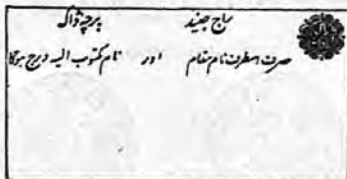 راج جیند پرچہ ڈاک
صرف اسطرف نام مقام اور نام مکتوب الیہ درج ہوگا